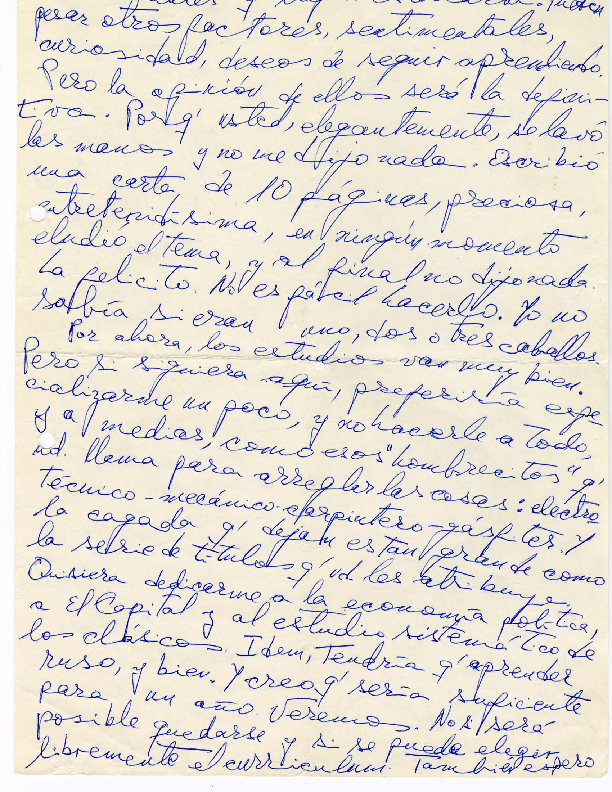 pesar otros factores, sentimentales,
curiosidad, deseos de seguir aprendiendo.
Pero la opinión de ellos será la defini-
tiva. Porq' usted, elegantemente, se lavó
las manos y no me dijo nada. Escribió
una carta de 10 páginas, preciosa,
entretenidísima, en ningún momento
eludió el tema, y al final no dijo nada.
La felicito. No es fácil hacerlo. Yo no
sabía si eran uno, dos o tres caballos
Por ahora, los estudios van muy bien.
Pero si siguiera aquí, preferiría espe-
cializarme un poco, y no hacerle a todo,
y a medias, como esos "hombrecitos" q'
ud. llama para arreglar las cosas: electro
técnico-mecánico-carpintero-gásfiter. Y
la cagada q' dejan es tan grande como
la serie de títulos q' ud. les atribuye.
Quisiera dedicarme a la economía política,
a El Capital y al estudio sistemático de
los clásicos. Idem, tendría q' aprender
ruso, y bien. Y creo q' sería suficiente
para un año. Veremos. No sé será
posible quedarse y si se puede elegir
libremente el curriculum. También espero